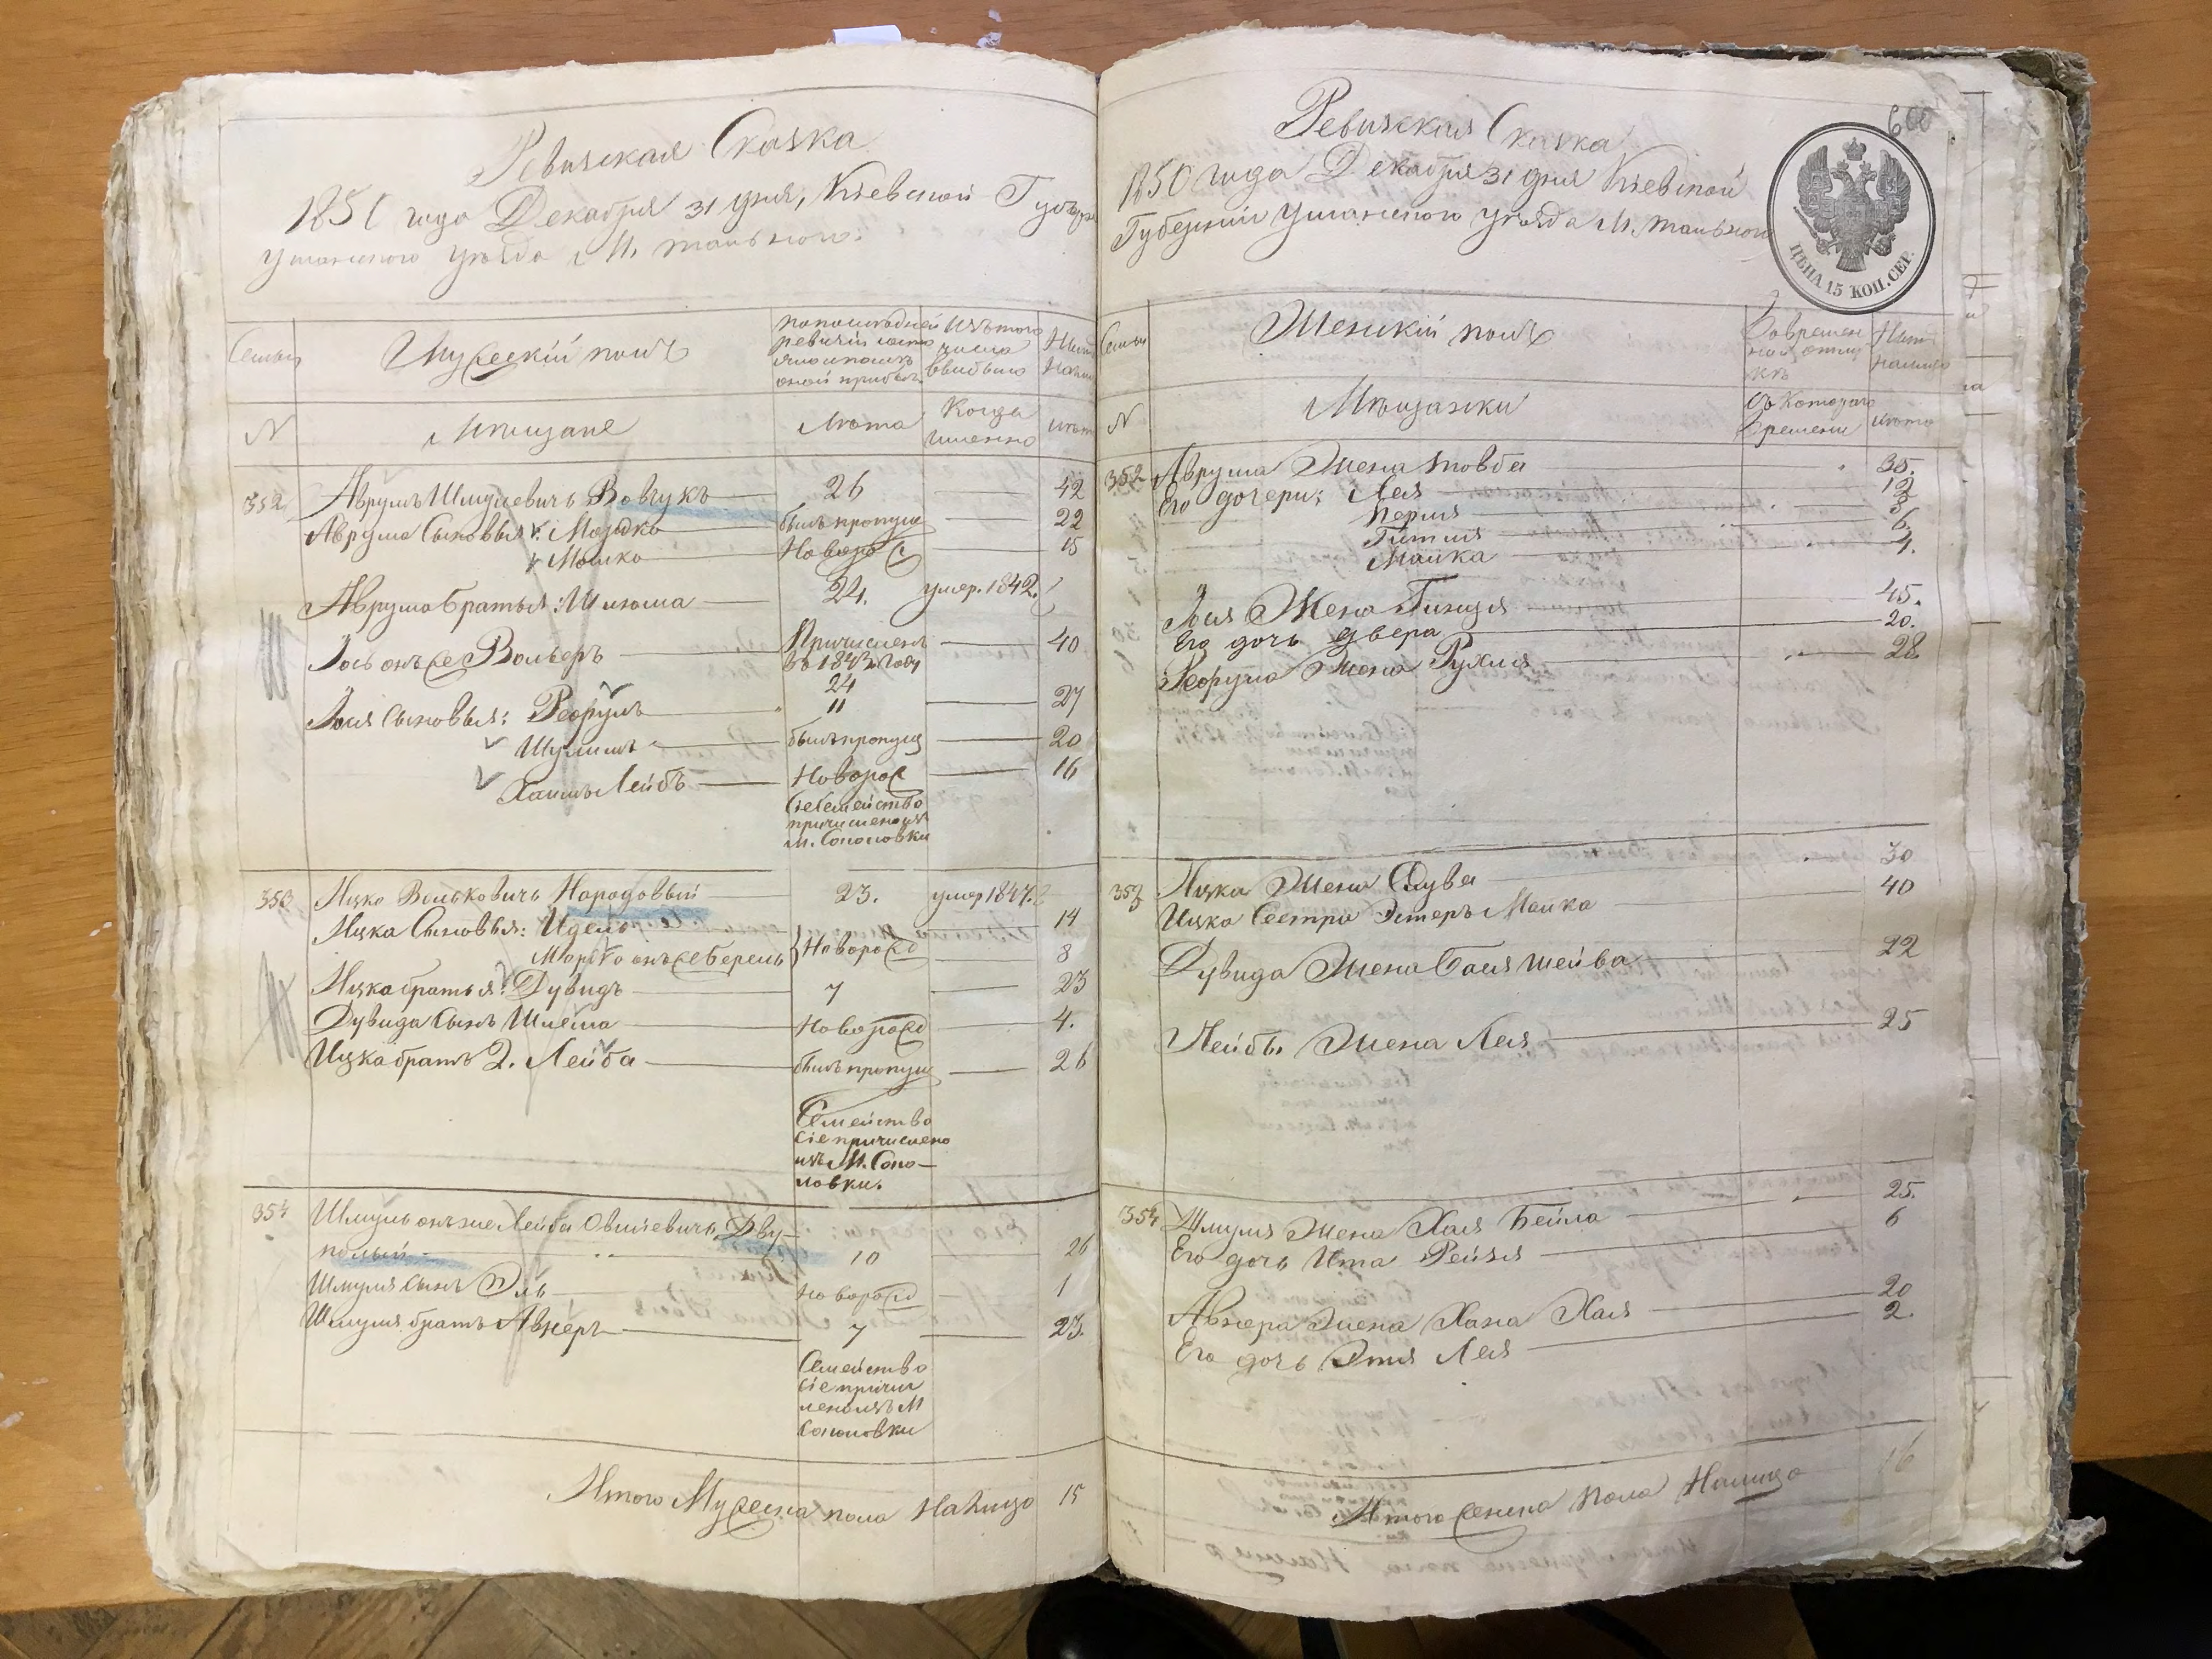 Ревизская Сказка
1850 года Декабря 31 дня, Кіевской Губер
Уманского уѣзда М. Тального.
Семьи
Мужескій полъ
по последней
ревизіи состо
яло и послѣ
оной прибыло
Изъ того
числа
выбыло
Нын
Налиц
N
Мѣщане
Лѣта
Когда
именно
Лѣта
352
Аврумъ Шмулевичъ Вовчукъ
26
42
Аврума Сыновья: Мордко
былъ пропущ
22
Мошко
Новорож
15
Аврума братья: Шлиома
24.
умер. 1842.
Іось онъ же Вольеръ
Причисленъ
въ 1843 году
24
40
Іося Сыновья:
11
27
Шулимъ
былъ пропущ
20
Хаимъ Лейбъ
Новорож
16
Сіе семейство
причислено изъ
м. Соколовки
353
Ицко Вольковичъ Народовый
23.
умер 1847.
Ицка Сыновья: Идель
14
Новорожд
Морко онъ же Берель
8
Ицка братья: Дувидъ
7
23
Дувида Сынъ Шлема
Новорожд
4.
Ицка братъ 2. Лейба
былъ пропущ
26
Семейство
сіе причислено
изъ М. Соко-
ловки.
354
Шмуль онъ же Лейба Овшіевичъ Дву-
польый
10
26
Шмуля сынъ Эль
Новорожд
1
Шмуля братъ Авнеръ
7
23.
Семейство
сіе причи
слено изъ М
Соколовки
Итого Мужеска пола На лицо 15
600
Ревизская Сказка
1850 года Декабря 31 дня Кіевской
Губерніи Уманского уѣзда М. Тального
ЦѢНА 15 КОП. СЕР.
Семьи
Женскій полъ
Во времен
ной отлуч
кѣ
Нын
налицо
N
Мѣщанки
Съ котораго
времени
Лѣта
352
Аврума Жена Товба
35.
Его дочери: Лея
12
Перля
8
Гитля
6.
Малка
4.
Іося Жена Гинця
45.
Его дочь Двера
20.
Жена Рухля
28.
353
Ицка Жена Слува
30
Ицка Сестра Эстеръ Малка
40
Дувида Жена Бася Шейва
22
Лейбы Жена Лея
25
354
Шмуля Жена Хая Бейла
25.
Его дочь Ита Рейзя
6
Авнера Жена Хана Хая
20
Его дочь Этя Лея
2.
Итого Женска пола Налицо 16